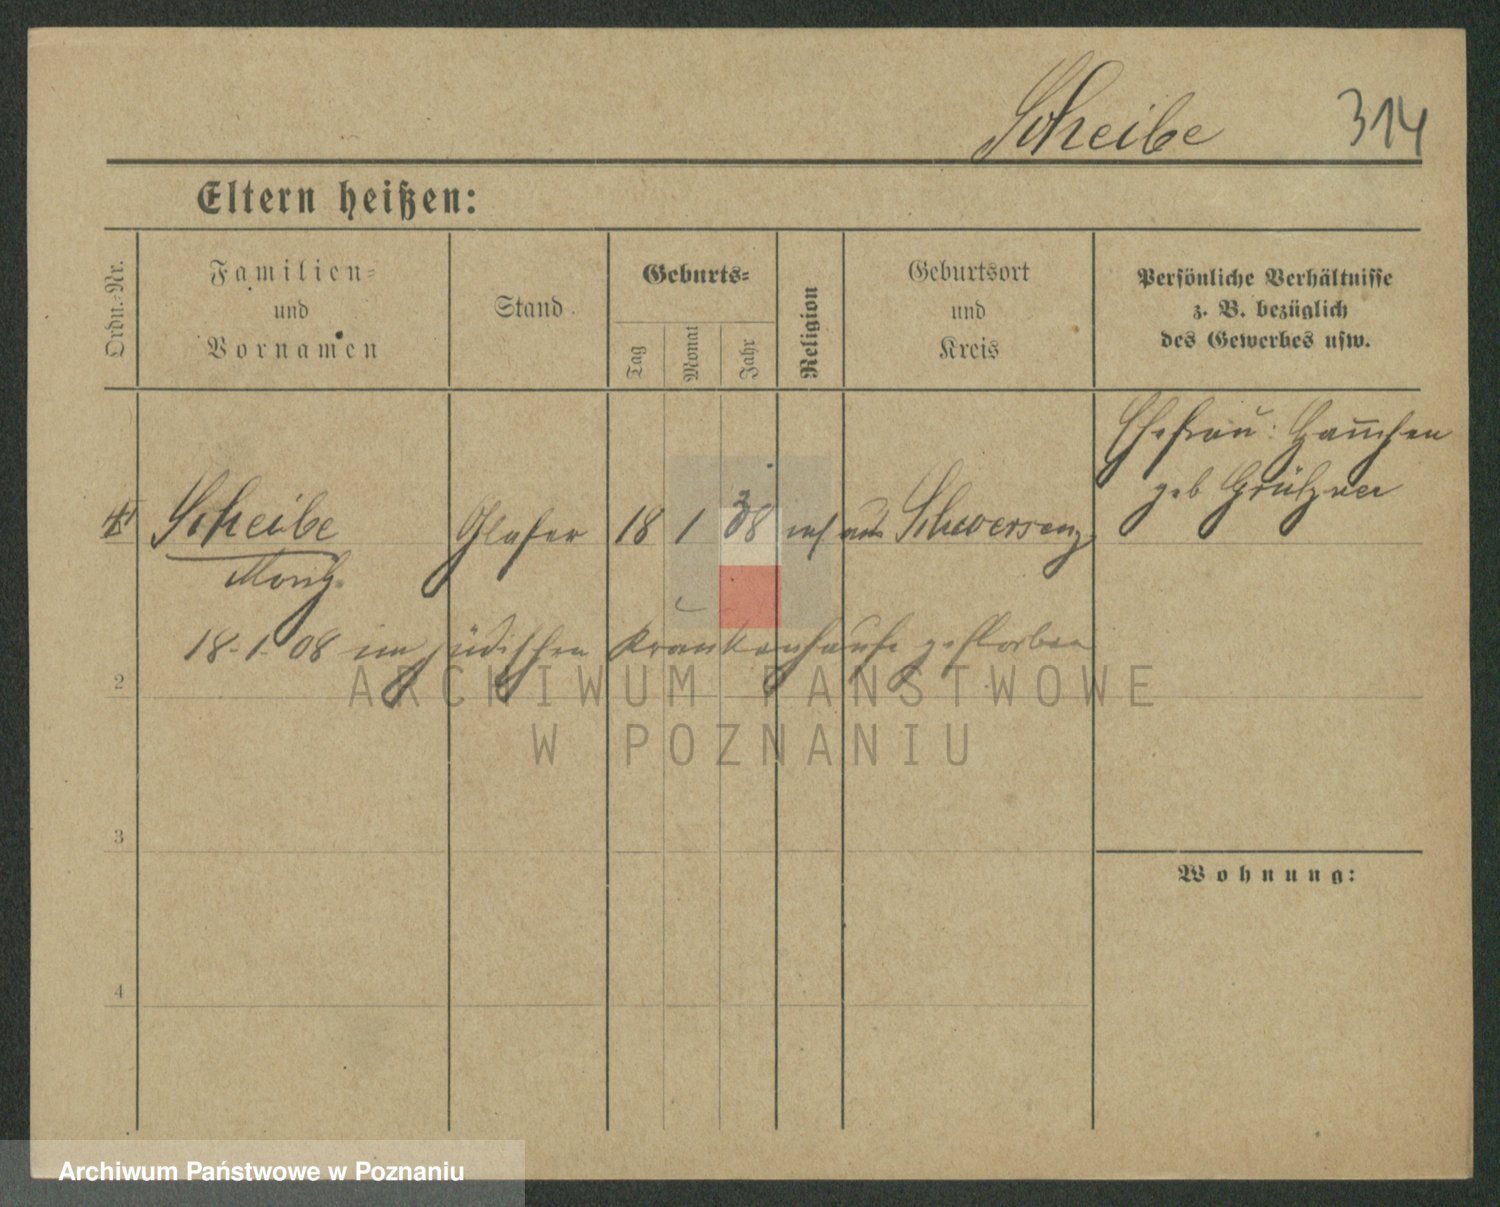 Scheibe 314
Eltern heißen:
Ordn.-Nr.
Familien-
und
Vornamen
Stand
Geburts-
Tag
Monat
Jahr
Religion
Geburtsort
und
Kreis
Persönliche Verhältnisse
z. B. bezüglich
des Gewerbes usw.
Ehefrau:
geb Grützner
Scheibe Glaser 18 1 38 aus Schwersenz
Moritz
18. 1. 08 im jüdischen Krankenhause gestorben
2
ARCHIWUM PAŃSTWOWE
W POZNANIU
3
Wohnung:
4
Archiwum Państwowe w Poznaniu